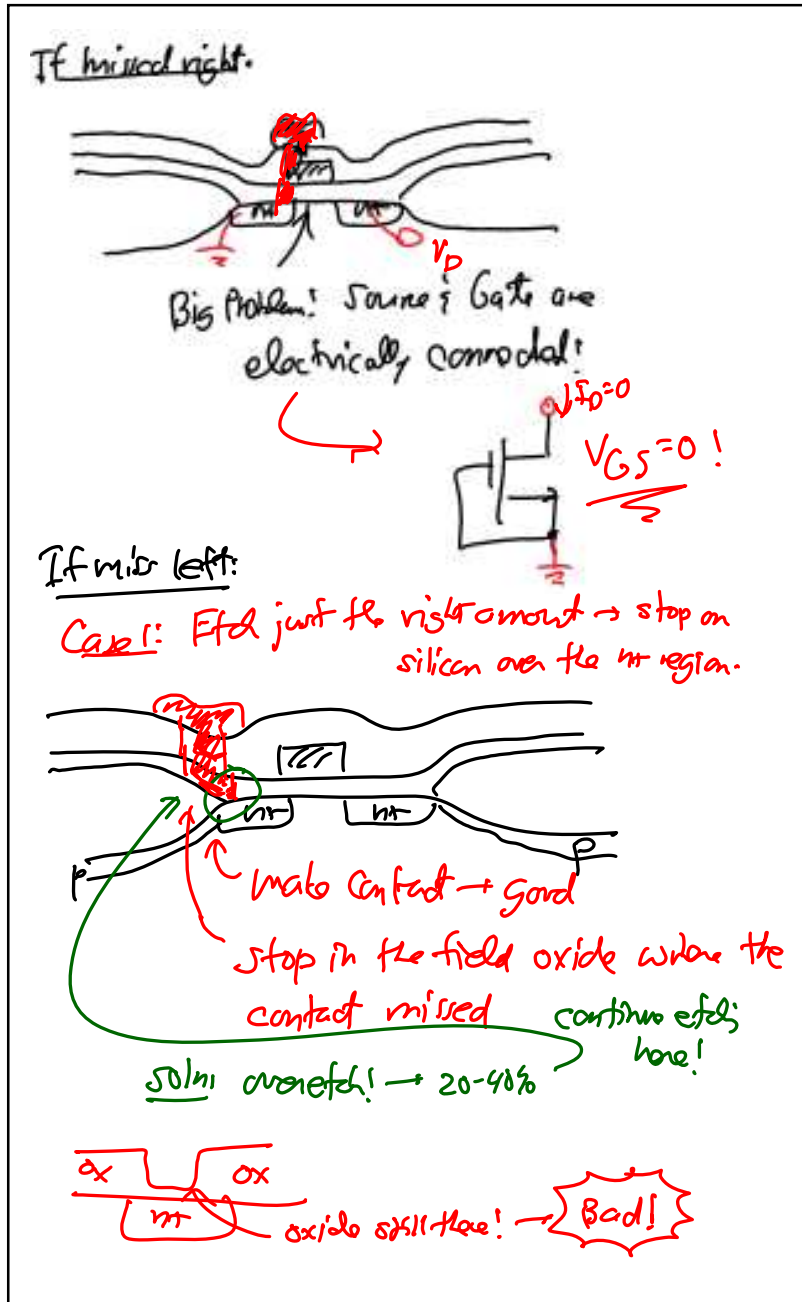 If missed right.
n+ n+
V_D
Big Problem! Source & Gate are
electrically connected!
I_D=0
V_GS=0!
If miss left:
Case 1: Etch just the right amount → stop on
silicon over the n+ region.
n+ n+
P P
make contact → good
stop in the field oxide where the
contact missed
continue etch
here!
Soln: overetch! → 20-40%
ox ox
n+
oxide still there! → Bad!